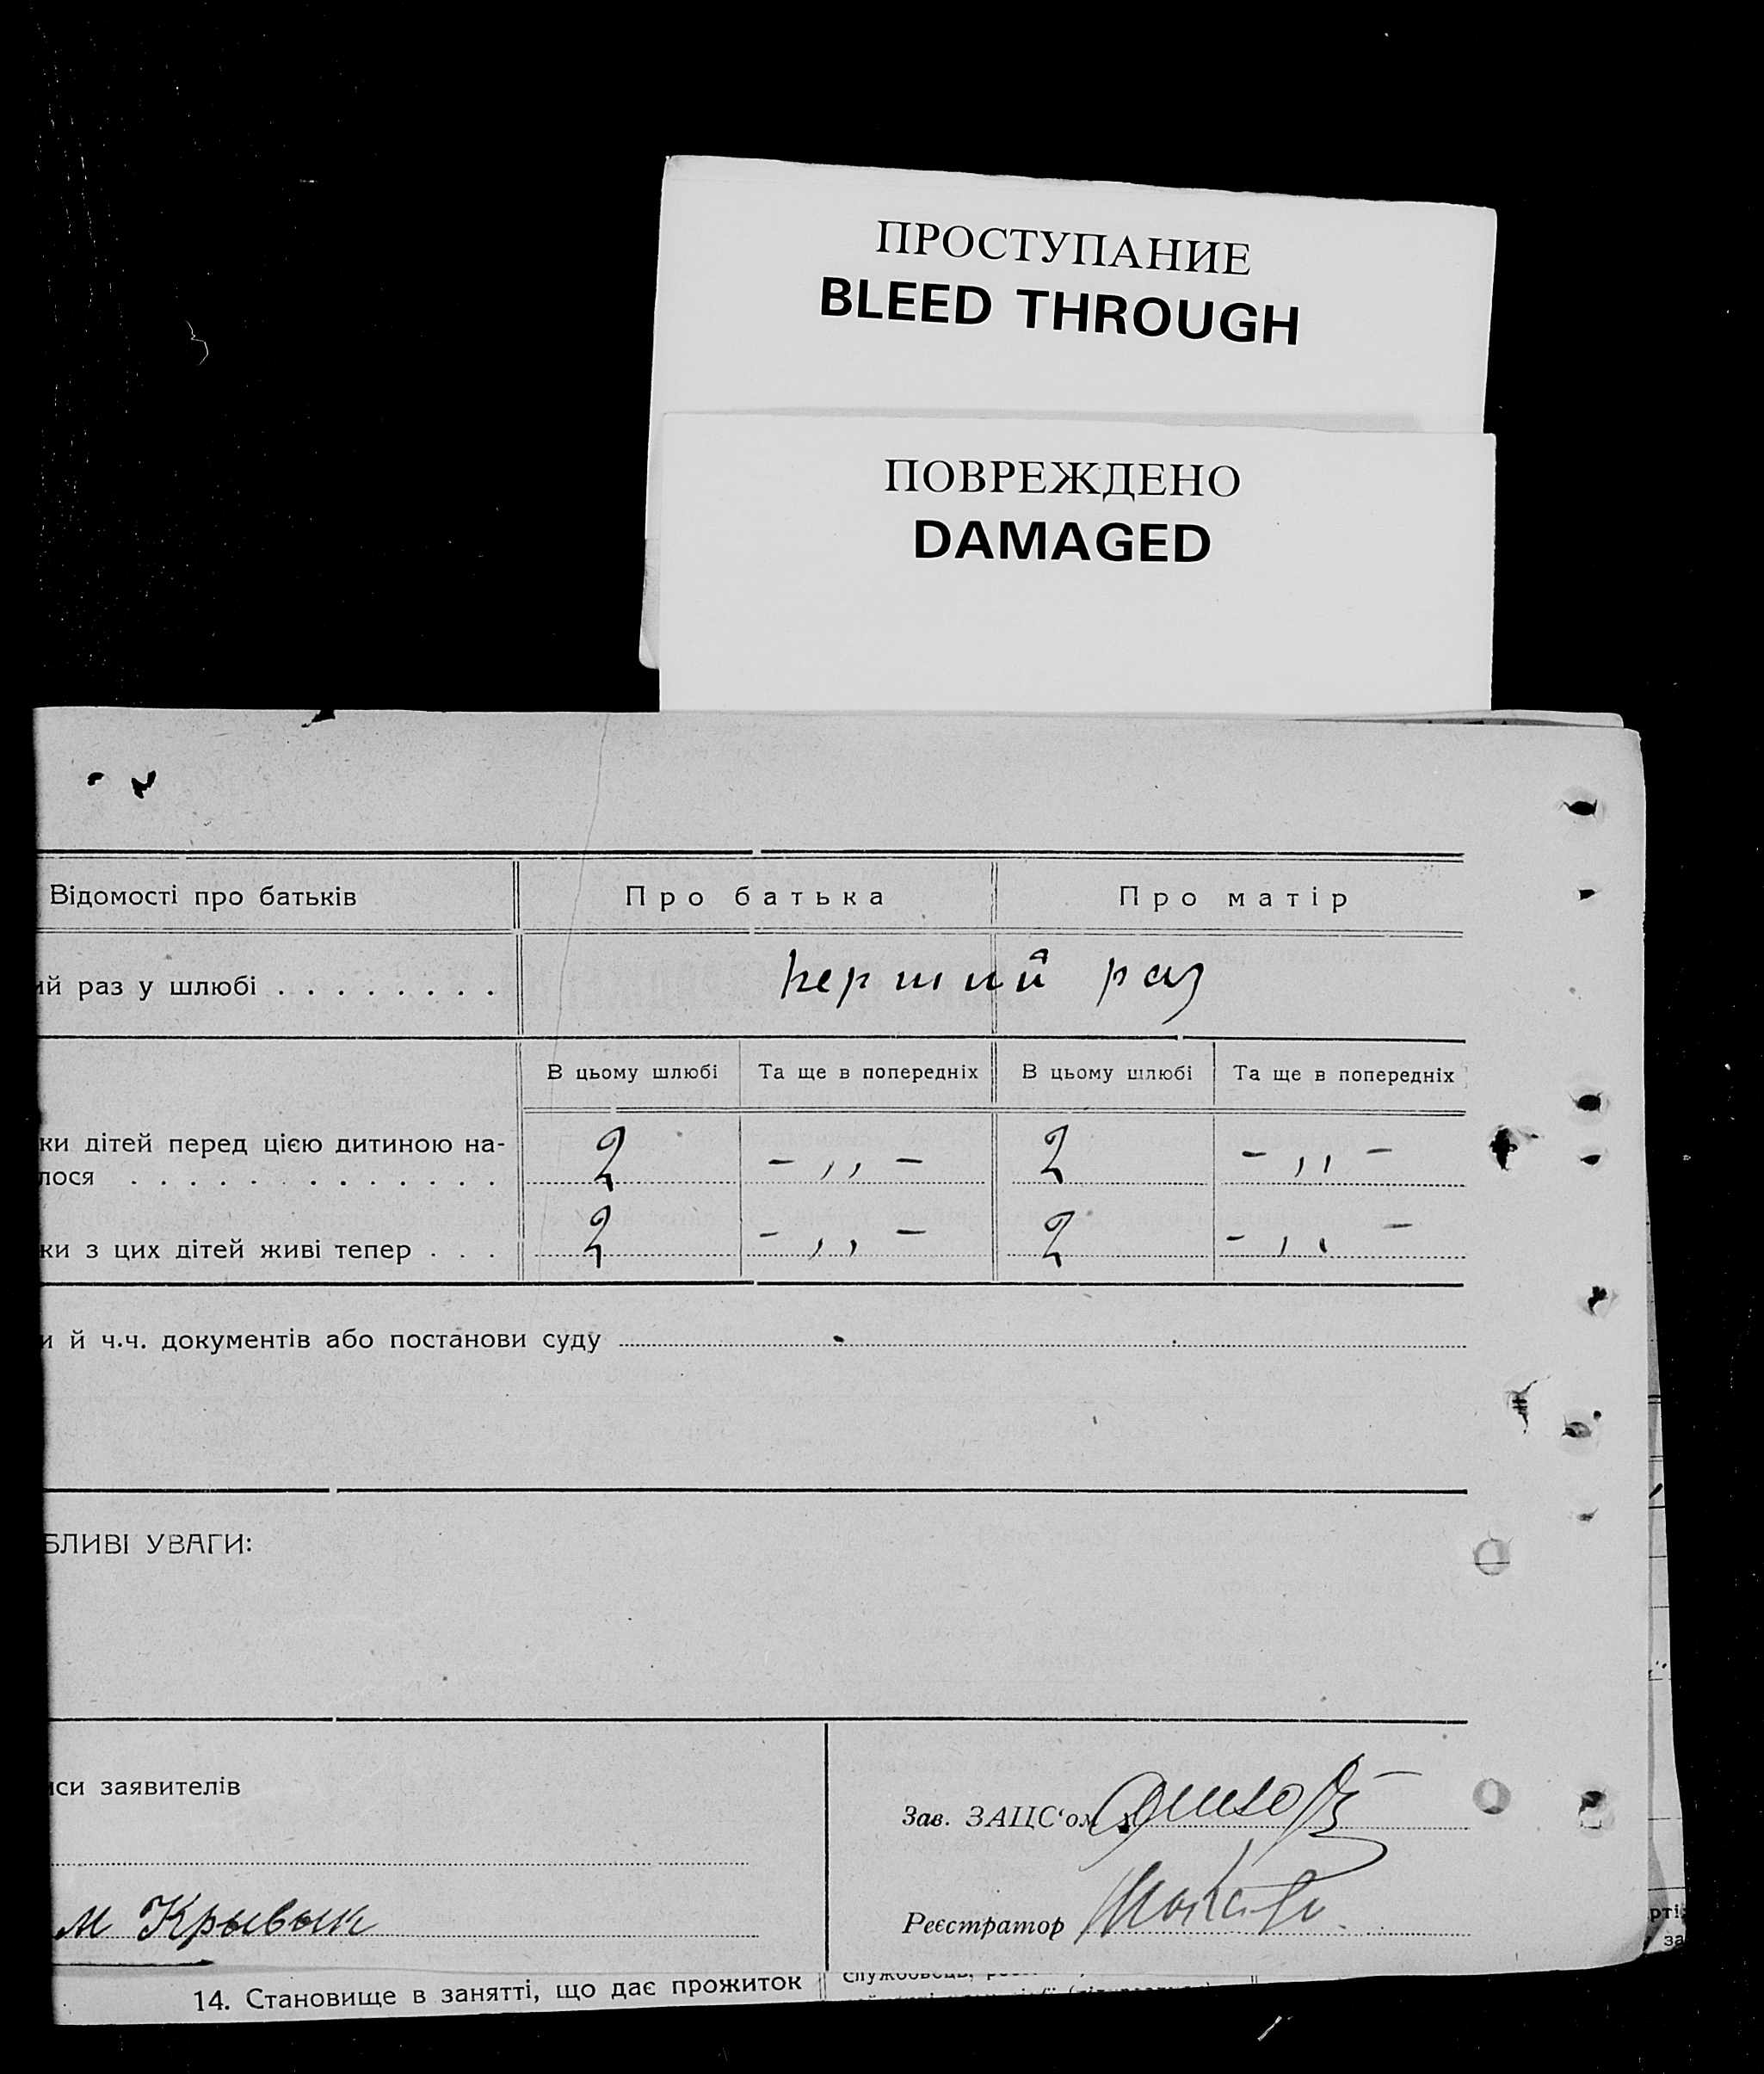 ПРОСТУПАНИЕ
BLEED THROUGH
ПОВРЕЖДЕНО
DAMAGED
Відомості про батьків Про батька Про матір
ий раз у шлюбі . . . . . . . . перший раз
В цьому шлюбі Та ще в попередніх В цьому шлюбі Та ще в попередніх
ки дітей перед цією дитиною на-
лося . . . . . . . . . . . . . 2 - ,, - 2 - ,, -
ки з цих дітей живі тепер . . . 2 - ,, - 2 - ,, -
и й ч.ч. документів або постанови суду
БЛИВІ УВАГИ:
иси заявителів
Зав. ЗАЦС‘ом
м Крывык
Реєстратор
14. Становище в занятті, що дає прожиток
рті
за